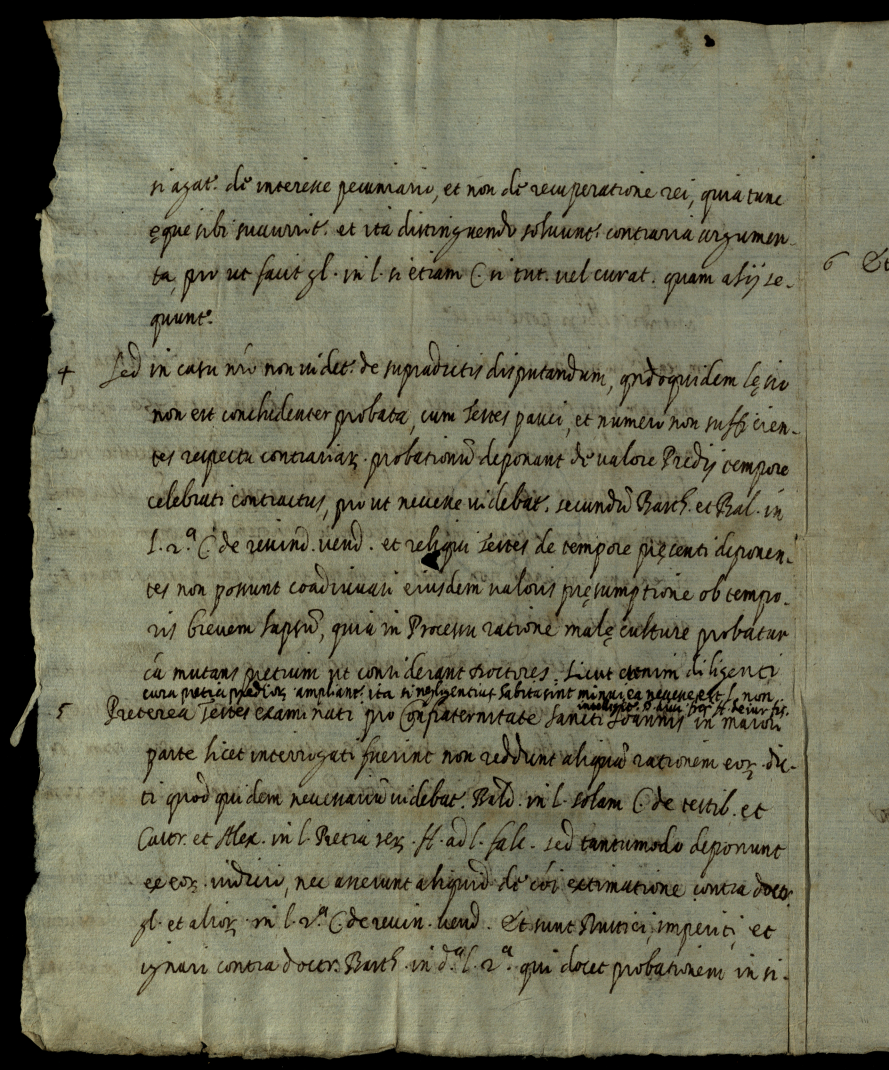 si agat.^r de interesse pecuniario, et non de recuperatione rei, quia tunc
ęque sibi sucurrit.^r et ita distinguendo soluunt.^r contraria argumen-
ta, pro ut facit gl. in l. si etiam C. si tut. vel curat. quam alij se-
quunt.^r
4 Sed in casu nro non uidet.^r de supradictis disputandum, qndoquidem lęsio
non est concludenter probata, cum Testes pauci, et numero non sufficien-
tes respectu contrariaꝝ. probationũ deponant de valore Predij tempore
celebrati contractus, pro ut necesse uidebat.^r secundũ Barth. et Bal. in
l. 2.ª C. de rescind. uend. et reliqui Testes de tempore pręsenti deponen-
tes non possunt coadiuuari eiusdem ualoris pręsumptione ob tempo-
ris breuem lapsũ, quia in Processu ratione malę culture probatur
mutans pretium ut considerant Doctores. Sicut etenim diligenti
cura pretia prædioꝝ ampliant.^r ita si negligentius habita sint minui ea necesse est l. non
5 Preterea Testes examinati pro Confraternitate Sancti Joannis in maiori
parte licet interrogati fuerint non reddunt aliquã rationem eoꝝ. dic-
ti quod quidem necessariũ uidebat.^r Bald. in l. solam C. de testib. et
Castr. et Alex. in l. Pretia reꝝ. ff. ad l. falc. sed tantumodo deponunt
ex eoꝝ. iudicio, nec asserunt aliquid de cõi extimatione contra doctr.
gl. et alioꝝ. in l. 2.ª C. de rescin. uend. Et sunt Rustici, imperiti, et
ignari contra doctr. Barth. in d.ª l. 2.ª qui docet probationem in si-
6 Et